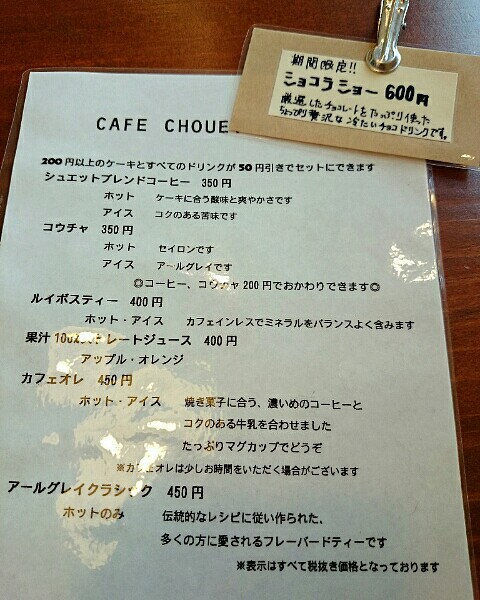 期間限定!!
ショコラショー 600円
厳選したチョコレートをたっぷり使った
ちょっぴり贅沢な冷たいチョコドリンクです。
CAFE CHOUE
200円以上のケーキとすべてのドリンクが50円引きでセットにできます
シュエットブレンドコーヒー 350円
ホット ケーキに合う酸味と爽やかさです
アイス コクのある苦味です
コウチャ 350円
ホット セイロンです
アイス アールグレイです
◎コーヒー、コウチャ200円でおかわりできます◎
ルイボスティー 400円
ホット・アイス カフェインレスでミネラルをバランスよく含みます
果汁100%ストレートジュース 400円
アップル・オレンジ
カフェオレ 450円
ホット・アイス 焼き菓子に合う、濃いめのコーヒーと
コクのある牛乳を合わせました
たっぷりマグカップでどうぞ
※カフェオレは少しお時間をいただく場合がございます
アールグレイクラシック 450円
ホットのみ 伝統的なレシピに従い作られた、
多くの方に愛されるフレーバードティーです
※表示はすべて税抜き価格となっております